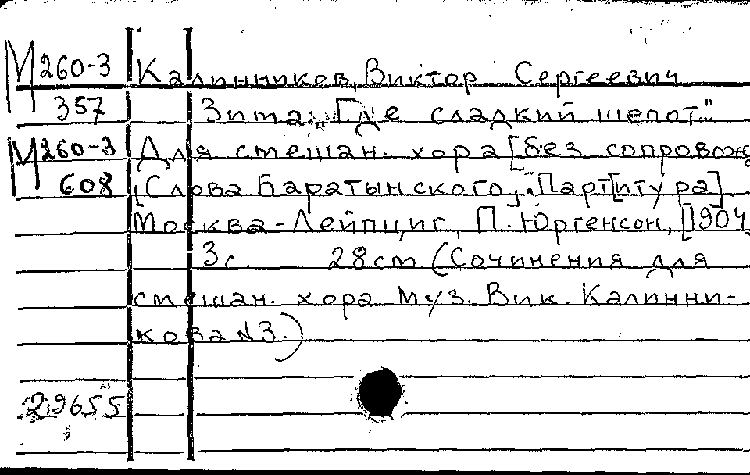 М260-3 Калинников, Виктор Сергеевич
357 Зима: "Где сладкий шепот"
М260-3 Для смешан. хора [без сопровож
608 [Слова Баратынского]. Парт[итура]
Москва-Лейпциг, П. Юргенсон, [1904
3с. 28см (Сочинения для
смешан. хора муз. Вик. Калинни-
кова №3.)
29655